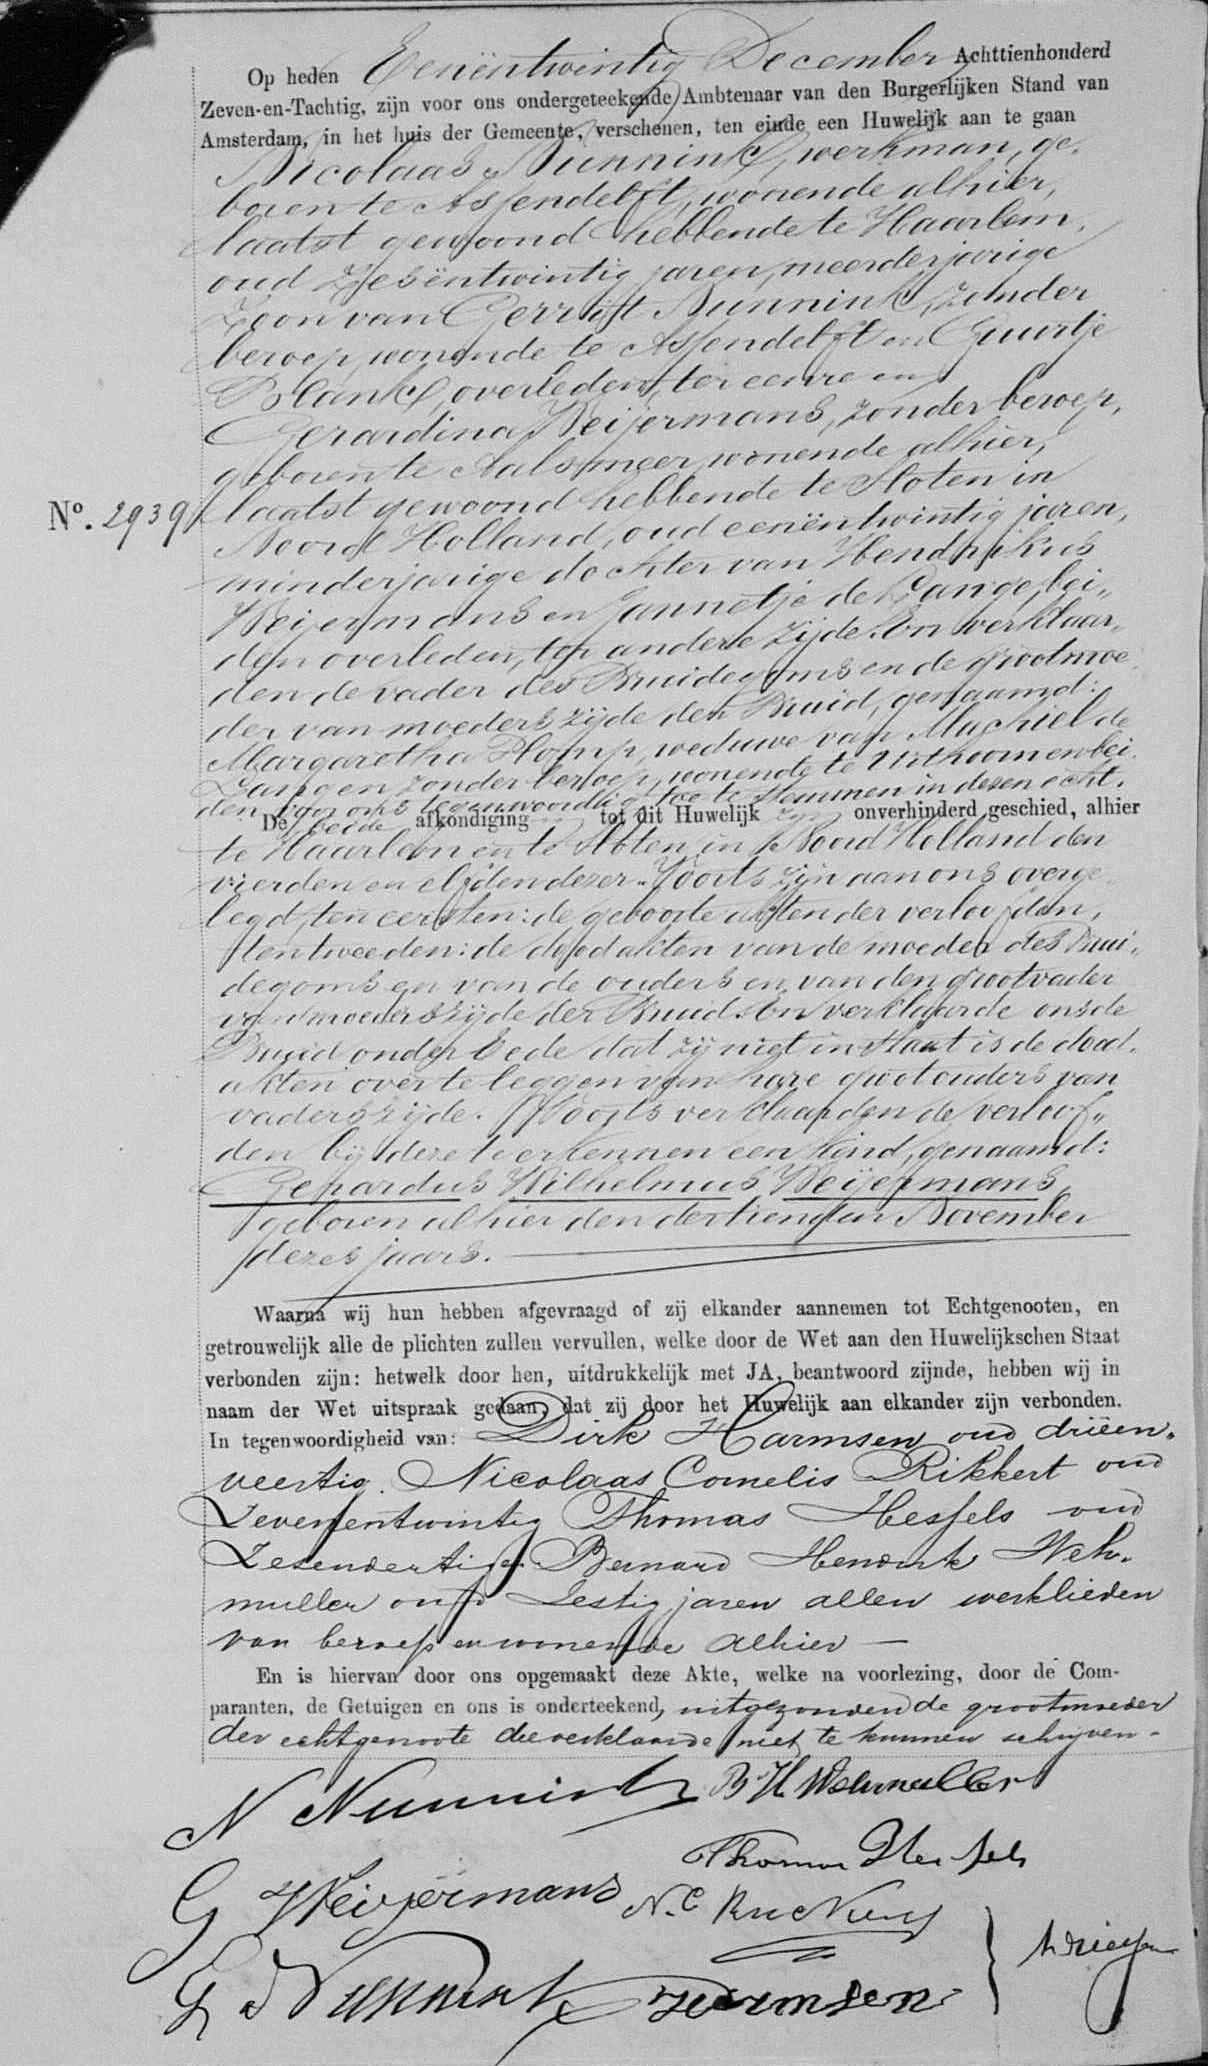 Op heden Eenëntwintig December Achttienhonderd
Zeven-en-Tachtig, zijn voor ons ondergeteekende, Ambtenaar van den Burgerlijken Stand van
Amsterdam, in het huis der Gemeente, verschenen, ten einde een Huwelijk aan te gaan
Nicolaas Nunnink, werkman, ge„
boren te Assendelft, wonende alhier,
laatst gewoond hebbende te Haarlem,
oud zesëntwintig jaren, meerderjarige
Zoon van Gerrit Nunnink, zonder
beroep, wonende te Assendelft en Guurtje
Blank, overleden, ter eenre en
Gerardina Weijermans, zonder beroep,
geboren te Aalsmeer, wonende alhier,
laatst gewoond hebbende te Sloten in
No. 2939
Noord Holland, oud eenëntwintig jaren,
minderjarige dochter van Hendrikus
Weijermans en Jannetje de Lange, bei„
den overleden, ter andere zijde. En verklaar„
den de vader des Bruidegoms en de grootmoe„
der van moeders zijde der Bruid, genaamd:
Margaretha Plomp, weduwe van Machiel de
Lange en zonder beroep, wonende te Uithoorn en bei„
den voor ons tegenwoordig, toe te stemmen in dezen echt.
De beide afkondiging tot dit Huwelijk zijn onverhinderd geschied, alhier
te Haarlem en te Sloten in Noord Holland den
vierden en elfden dezer. Voorts zijn aan ons overge„
legd, ten eersten: de geboorte akten der verloofden,
ten tweeden: de dood akten van de moeder des Brui„
degoms en van de ouders en van den grootvader
van moeders zijde der Bruid. En verklaarde ons de
Bruid onder Eede dat zij niet in staat is de dood„
akten over te leggen van hare grootouders van
vaders zijde. Voorts verklaarden de verloof„
den bij deze te erkennen een kind, genaamd:
Gerardus Wilhelmus Weijermans
geboren alhier den dertienden November
dezes jaars.
Waarna wij hun hebben afgevraagd of zij elkander aannemen tot Echtgenooten, en
getrouwelijk alle de plichten zullen vervullen, welke door de Wet aan den Huwelijkschen Staat
verbonden zijn: hetwelk door hen, uitdrukkelijk met JA, beantwoord zijnde, hebben wij in
naam der Wet uitspraak gedaan, dat zij door het Huwelijk aan elkander zijn verbonden.
In tegenwoordigheid van: Dirk Harmsen oud drieen„
veertig. Nicolaas Cornelis Rikkert oud
Zevenentwintig Thomas Hessels oud
Zesendertig Bernard Hendrik Weh„
muller oud Zestig jaren allen werklieden
van beroep en wonende alhier —
En is hiervan door ons opgemaakt deze Akte, welke na voorlezing, door de Com-
paranten, de Getuigen en ons is onderteekend, uitgezonderd de grootmoeder
der echtgenoote die verklaarde niet te kunnen schrijven-
N Nunnink B H Wehmuller
Thomas Hessels
G Weijermans N. C Rikkert
G Nunnink Harmsen